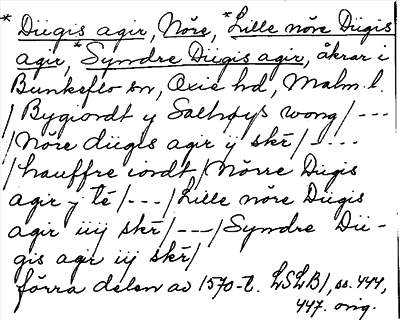 * Diigis agir, Nöre, * Lille nöre Diigis
agir, * Syndre Diigis agir, åkrar i
Bunkeflo sn, Oxie hd, Malm. l.
/ Bygiordt y Salhøys wong / ---
/ Nöre diigis agr y skr̄ / ---
/ hauffre iordt / Nörre Diigis
agir y tē / --- / Lille nöre Diigis
agir iiij skr̄ / --- / Syndre Dii-
gis agr iij skr̄ /
förra delen av 1570-t. LSLB 1, ss. 444,
447. orig.